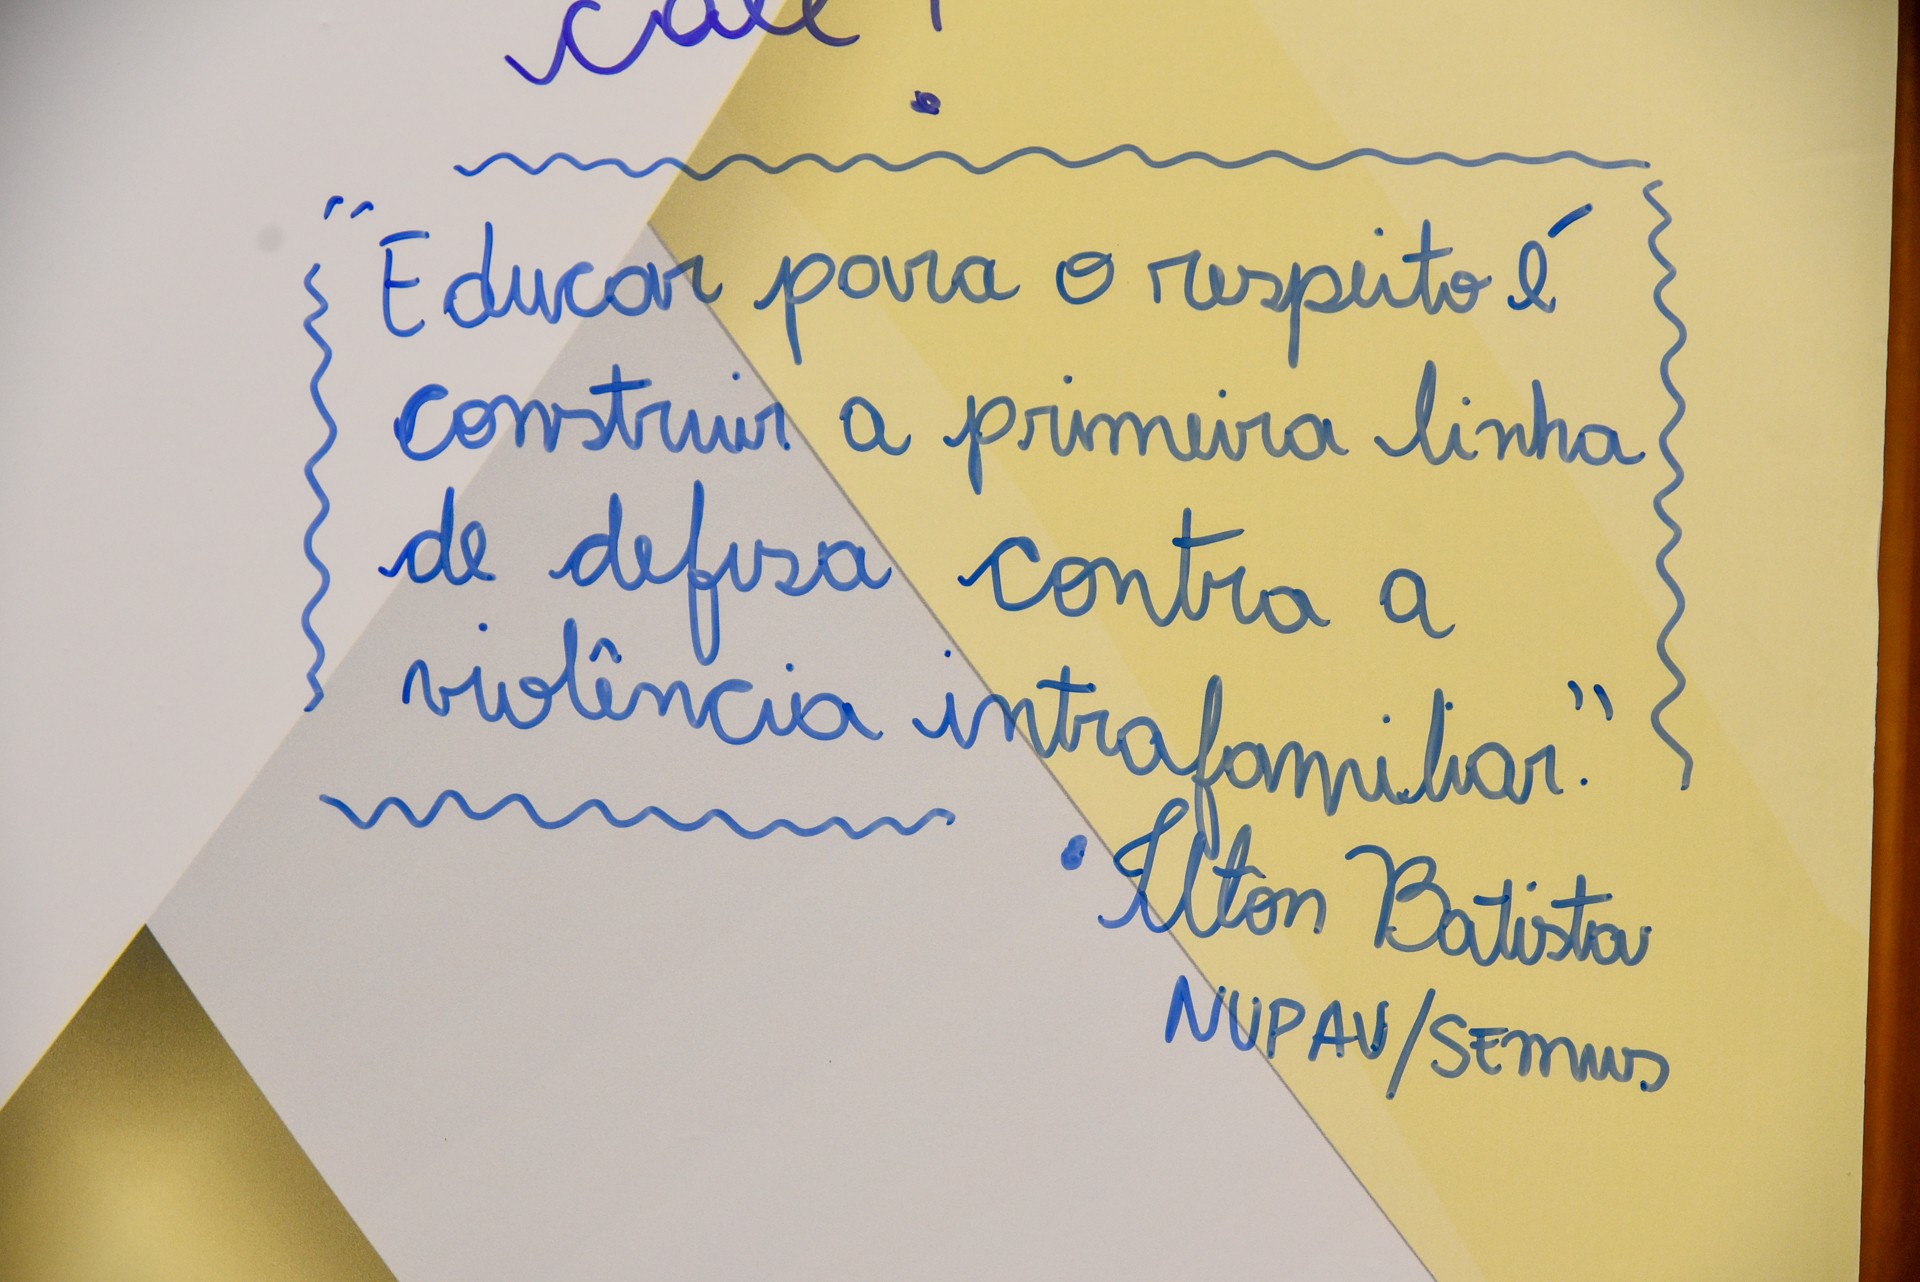 cale!
"Educar para o respeito é
construir a primeira linha
de defesa contra a
violência intrafamiliar."
Ilton Batista
NUPAV/SEMUS